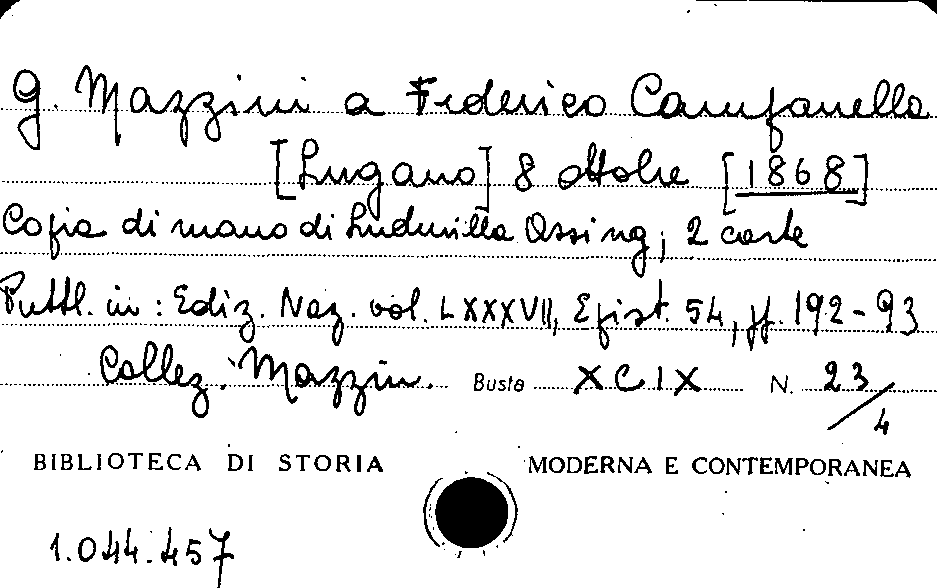 G. Mazzini a Federico Campanella
[Lugano] 8 ottobre [1868]
Copia di mano di Ludmilla Assing; 2 carte
Pubbl. in: Ediz. Naz. vol. LXXXVII, Epist. 54, pp. 192-93
Collez. Mazzin. Busta XCIX N. 23/4
BIBLIOTECA DI STORIA MODERNA E CONTEMPORANEA
1.044.457